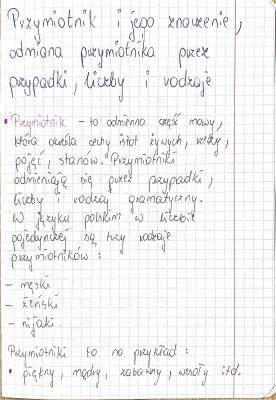 Przymiotnik i jego znaczenie,
odmiana przymiotnika przez
przypadki, liczby i rodzaje
• Przymiotnik - to odmienna część mowy,
która określa cechy istot żywych, rzeczy,
pojęć, stanów. Przymiotniki
odmieniają się przez przypadki,
liczby i rodzaj gramatyczny.
W języku polskim w liczbie
pojedynczej są trzy rodzaje
przymiotników:
- męski
- żeński
- nijaki.
Przymiotniki to na przykład:
• piękny, mądry, zabawny, wesoły itd.